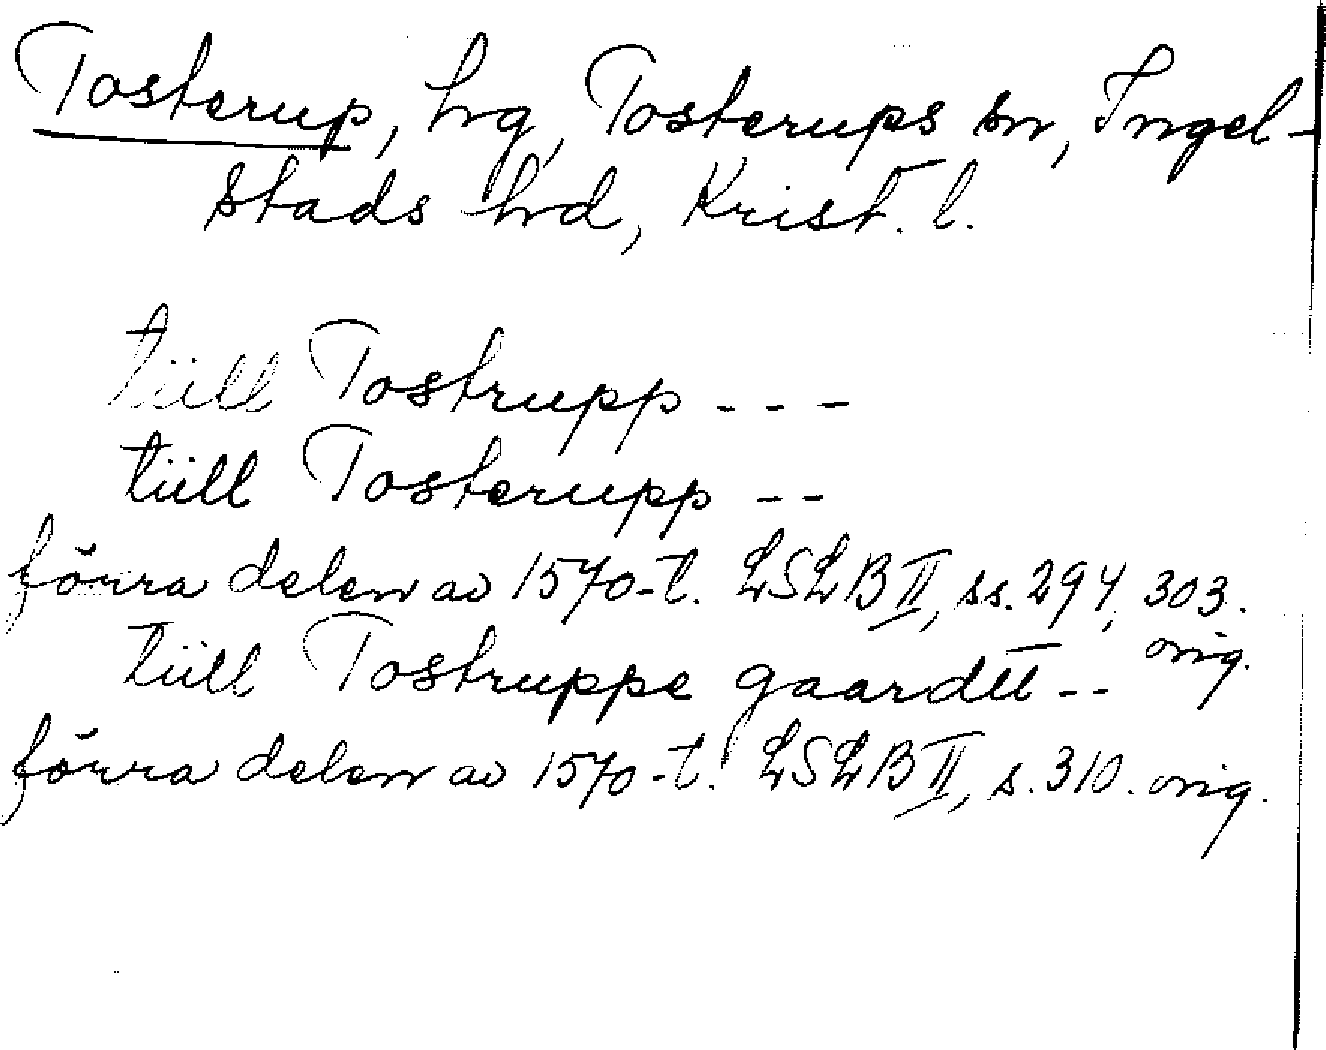 Tosterup, hrg, Tosterups sn, Ingel-
stads hrd, Krist. l.
tüll Tostrupp - - -
tüll Tosterupp - -
förra delen av 1570-t. LSLB II, ss. 294, 303.
orig.
tüll Tostruppe gaardtt - -
förra delen av 1570-t. LSLB II, s. 310. orig.